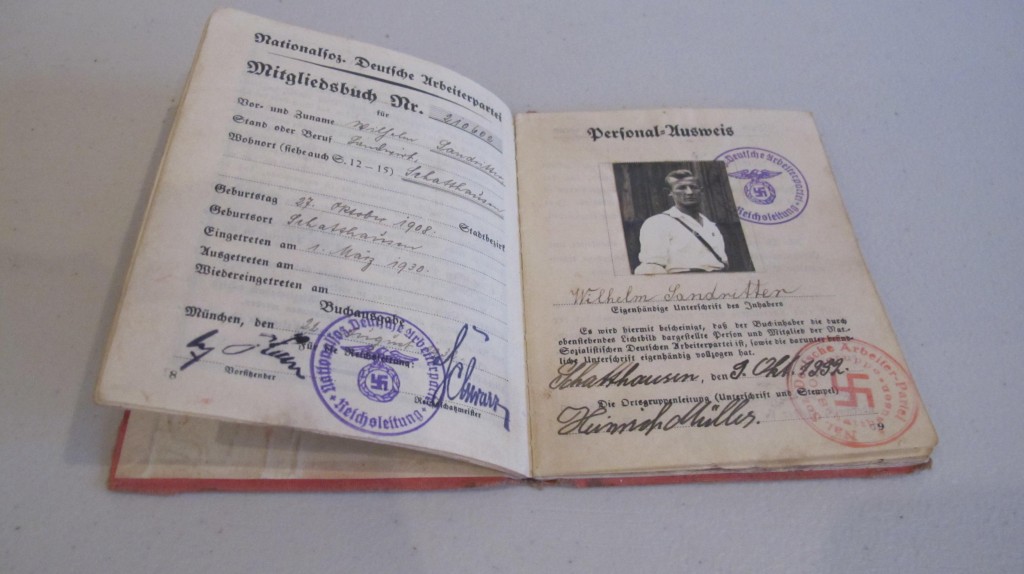 Nationalsoz. Deutsche Arbeiterpartei
Mitgliedsbuch Nr. 210602
für
Vor- und Zuname Wilhelm Sandritter
Stand oder Beruf Landwirt
Wohnort (siehe auch S. 12-15) Schatthausen
Geburtstag 27. Oktober 1908. Stadtbezirk
Geburtsort Schatthausen
Eingetreten am 1. März 1930.
Ausgetreten am
Wiedereingetreten am
Buchausgabe
München, den
Für die Reichsleitung:
Vorsitzender
Schwarz
Reichsschatzmeister
Nationalsoz. Deutsche Arbeiterpartei
Reichsleitung
8
Personal-Ausweis
Deutsche Arbeiterpartei
Reichsleitung
Wilhelm Sandritter
Eigenhändige Unterschrift des Inhabers
Es wird hiermit bescheinigt, daß der Buchinhaber die durch
obenstehendes Lichtbild dargestellte Person und Mitglied der Nat-
Sozialistischen Deutschen Arbeiterpartei ist, sowie die darunter befind-
liche Unterschrift eigenhändig vollzogen hat.
Schatthausen, den 9. Okt. 1932.
Die Ortsgruppenleitung (Unterschrift und Stempel)
Heinrich Müller.
Deutsche Arbeiter-Partei
9